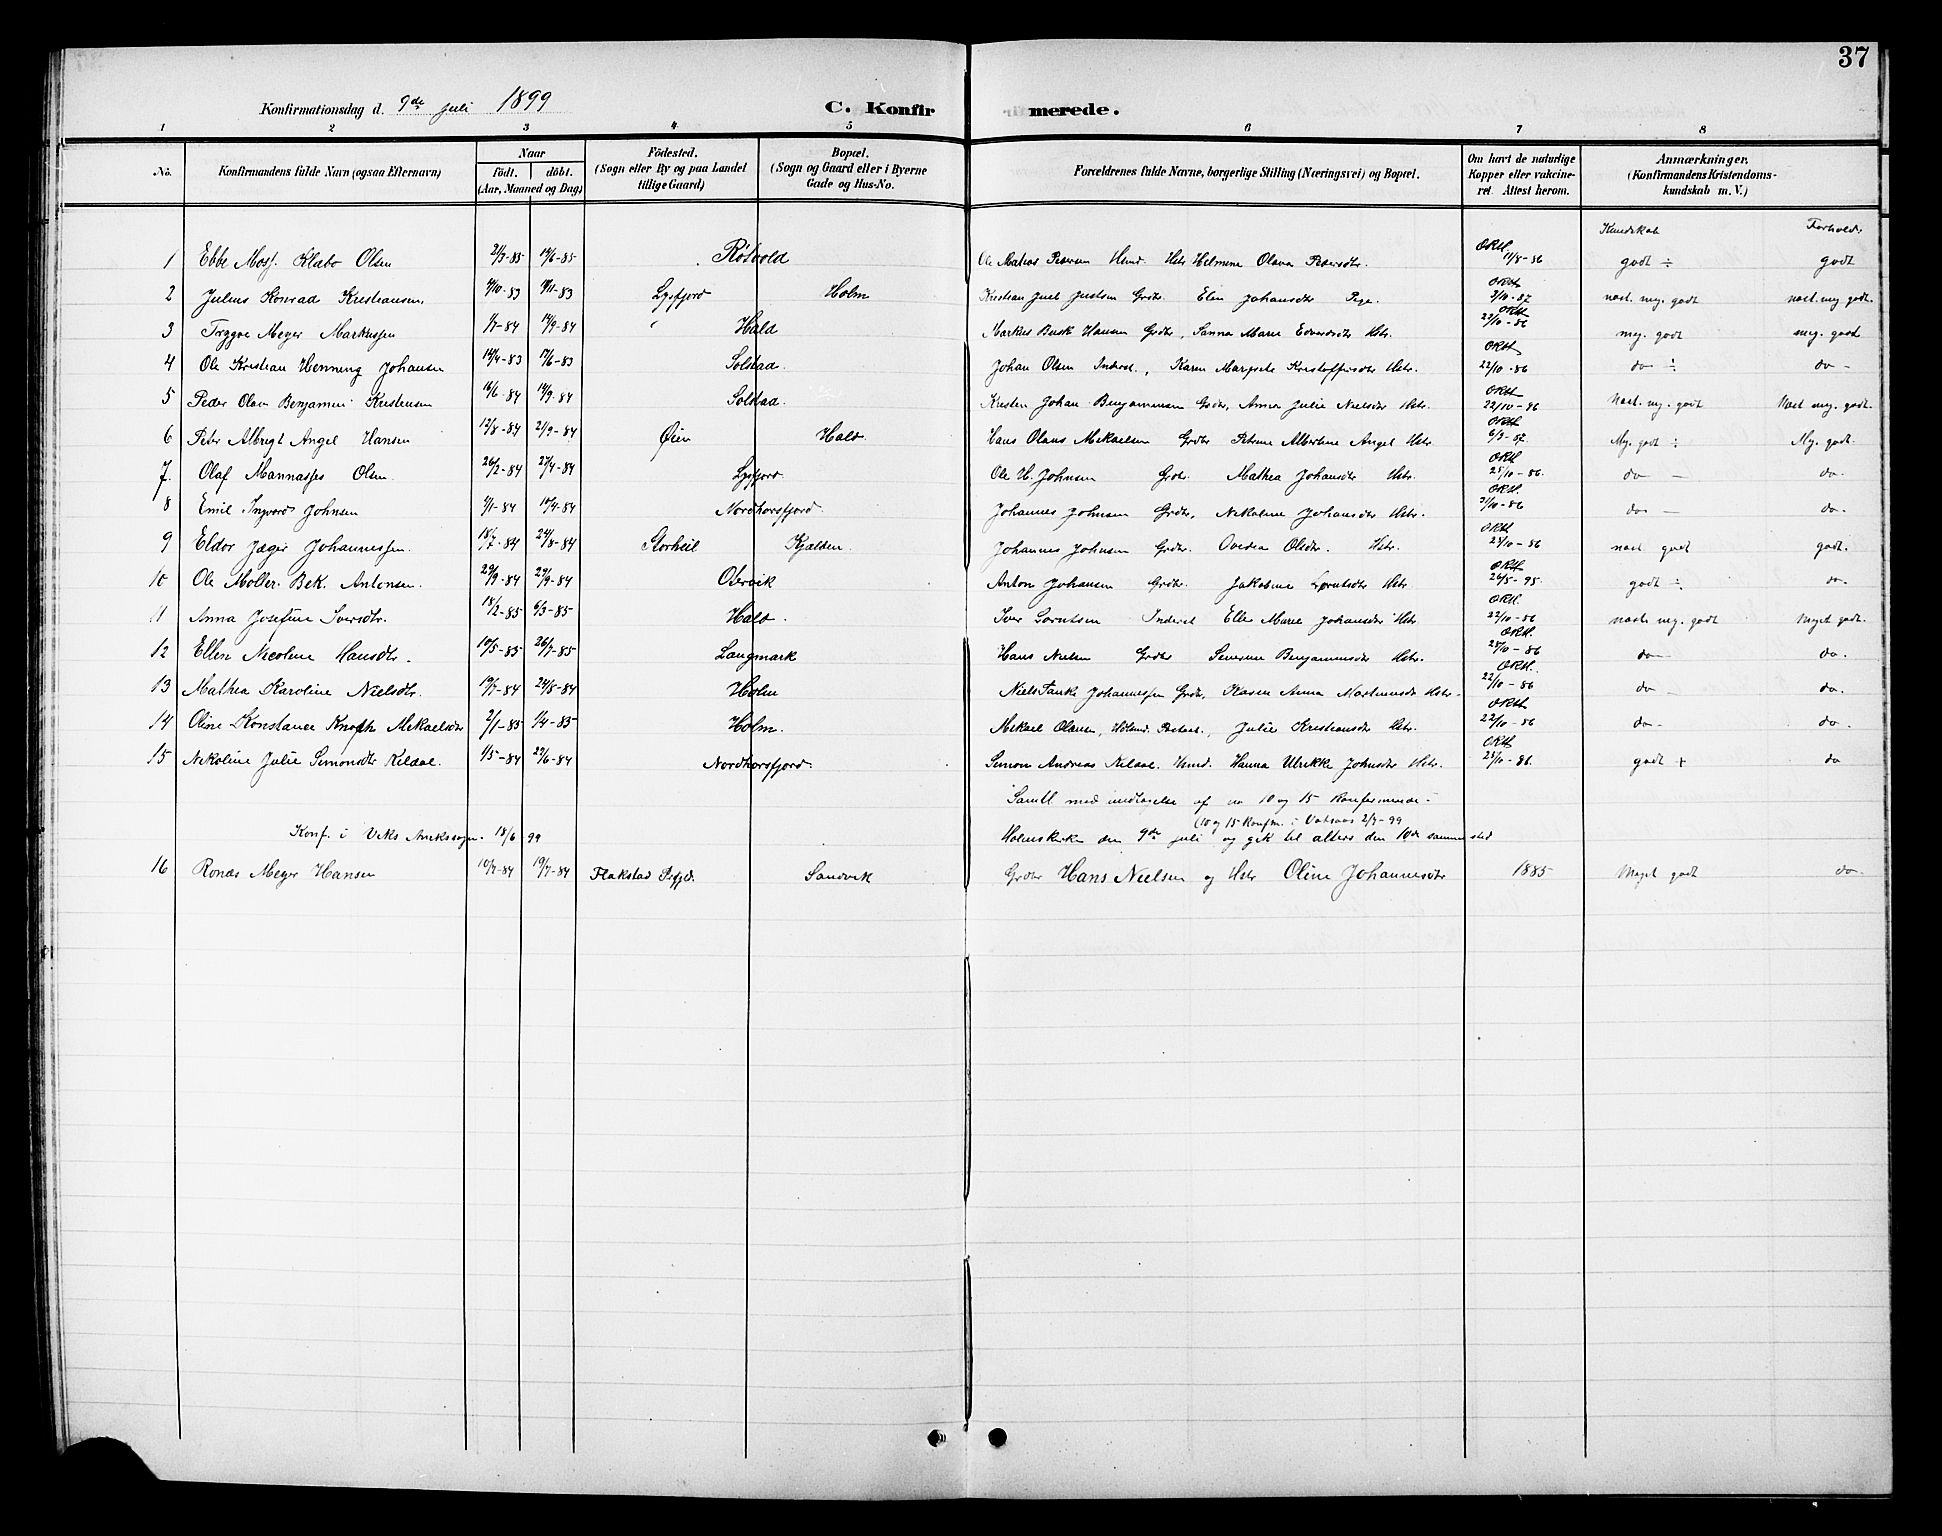 37
Konfirmationsdag d. 9de juli 1899 C. Konfir merede.
1 2 3 4 5 6 7 8
No. Konfirmandens fulde Navn (ogsaa Efternavn) Naar födt. döbt. (Aar, Maaned og Dag) Födested. (Sogn eller By og paa Landet tillige Gaard) Bopæl. (Sogn og Gaard eller i Byerne Gade og Hus-No. Forældrenes fulde Navne, borgerlige Stilling (Næringsvei) og Bopæl. Om havt de naturlige Kopper eller vakcineret. Attest herom. Anmærkninger. (Konfirmandens Kristendomskundskab m. V.)
Kundskab Forholdr
1 Ebbe Mosf. Klæbo Olsen 2/3-85 14/6-85 Røtvold Ole Mathias Petersen Hmd. Hstr Helmine Olava Pedersdtr. OKH. 11/8-86 godt ÷ godt
2 Julius Konrad Kristiansen 4/10-83 4/11-83 Lysfjord Holm Kristian Juel Justsen Grdbr. Elen Johansdtr Pige. OKH 2/10-87 nast. mg. godt nast. mg godt.
3 Tryggve Meyer Markussen 1/7-84 14/9-84 " Hald Markus Busk Hansen Grdbr, Sanna Marie Edvardsdtr Hstr. OKH 22/10-86 mg. godt meg. godt
4 Ole Kristian Henning Johansen 14/4-83 17/6-83 Solstad. Johan Olsen Inderst., Karen Margrete Kristoffersdtr Hstr. OKH 22/10-86 do ÷ do -
5 Peder Olav Benjamin Kristensen 16/6-84 14/9-84 Solstad. Kristen Johan Benjaminsen Grdbr, Anna Julie Nielsdtr Hstr. OKH 22/10-86 Nast. mg. godt Nast mg. godt.
6 Peter Albregt Angel Hansen 12/8-84 21/9-84 Øien Hald Hans Olaus Mikaelsen Grdbr Petrine Albertine Angel Hstr. OKH 6/9-87 Mg. godt ÷ Mg. godt.
7. Olaf Mannasses Olsen. 26/2-84 27/4-84 Lysfjord Ole H. Johnsen Grdbr. Mathea Johansdtr Hstr. OKH 25/10-86. do - do.
8 Emil Ingvard Johnsen 1/1-84 14/4-84 Nordhorsfjord Johannes Johnsen Grdbr, Nikoline Johansdtr Hstr. OKH. 21/10-86 do - do.
9 Eldor Jæger Johannessen. 18/7-84 24/8-84 Storheil Kjælden. Johannes Johnsen Grdbr. Ovedia Olsdtr. Hstr. OKH 24/10-86 nast godt godt.
10 Ole Møller. Bek. Antonsen. 29/9-84 Otervik Anton Johansen Grdbr. Jakobine Lorntsdtr Hstr OKH 26/5-95. godt ÷ do
11 Anna Josefine Iversdtr. 18/2-85 6/3-85 Hald. Iver Lorntsen Inderst Ellen Marie Johansdtr Hstr OKH. 22/10-86 nast. mg. godt Meget godt.
12 Ellen Nicoline Hansdtr. 14/5-85 26/7-85 Langmark Hans Nielsen Grdbr Severine Benjaminsdtr Hstr. OKH. 25/10-86 do do.
13 Mathea Karoline Nielsdtr. 19/7-84 24/8-84 Holm Niels Tanke Johannessen Grdbr, Karen Anna Mortensdtr Hstr OKH. 22/10-86 do - do.
14 Oline Konstance Knoph Mikaelsdtr 2/1-85 1/4-85 Holm. Mikael Olausen, Julie Kristiansdtr Hstr. OKH 22/10-86 do - do.
15 Nikoline Julie Simonsdtr Kildal. 1/5-84 29/6-84 Nordhorsfjord. Simon Andreas Kildal. Hmd. Hanna Ulrikke Johnsdtr Hstr. OKH 25/10-86. godt + do
Samtl med undtagelse af no 10 og 15 konfirmerede i
(10 og 15 Konfm. i Vatsaas 2/7-99
Holmskirken den 9de juli og gik til alters den 10de sammested
Konf. i Viks Annekssogn. 18/6 99
16 Ronæs Meyer Hansen 10/7-84 19/7-84 Flakstad Prgjld. Sandvik Grdbr Hans Nielsen og Hstr Oline Johannesdtr 1885 Meget godt do.